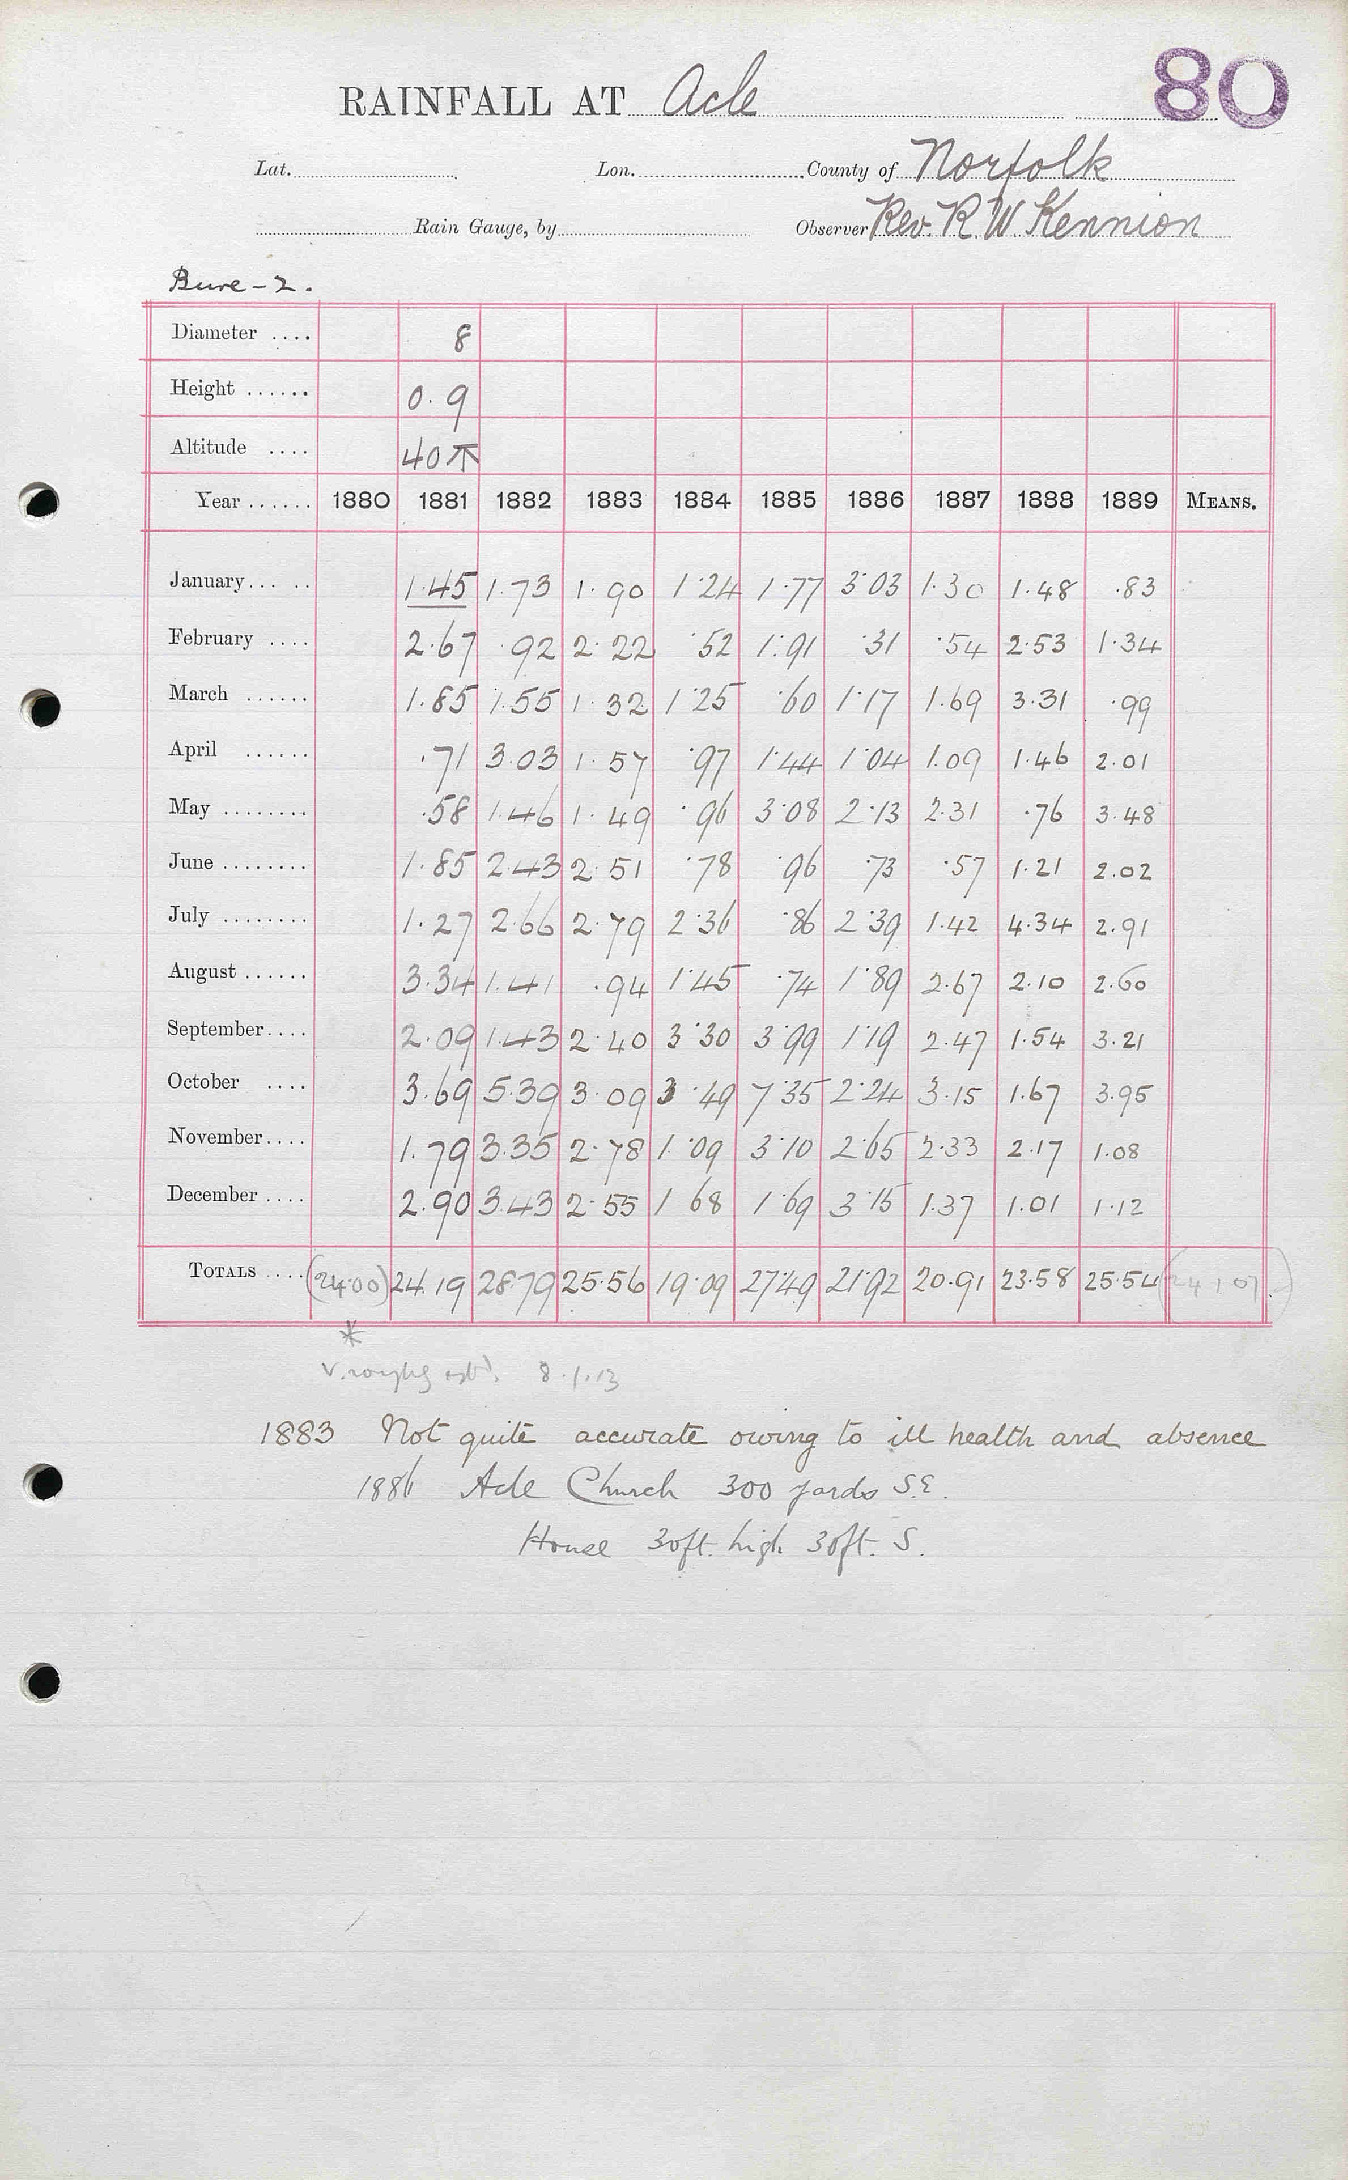 80
RAINFALL AT Acle
Lat. Lon. County of Norfolk
Rain Gauge, by Observer Rev. R W Kennion
Bure - 2.
Diameter .... 8
Height ...... 0.9
Altitude .... 40
Year ...... 1880 1881 1882 1883 1884 1885 1886 1887 1888 1889 MEANS.
January ..... 1.45 1.73 1.90 1.24 1.77 3.03 1.30 1.48 .83
February .... 2.67 .92 2.22 .52 1.91 .31 .54 2.53 1.34
March ...... 1.85 1.55 1.32 1.25 .60 1.17 1.69 3.31 .99
April ...... .71 3.03 1.57 .97 1.44 1.04 1.09 1.46 2.01
May ........ .58 1.46 1.49 .96 3.08 2.13 2.31 .76 3.48
June ........ 1.85 2.43 2.51 .78 .96 .73 .57 1.21 2.02
July ........ 1.27 2.66 2.79 2.36 .86 2.39 1.42 4.34 2.91
August ...... 3.34 1.41 .94 1.45 .74 1.89 2.67 2.10 2.60
September .... 2.09 1.43 2.40 3.30 3.99 1.19 2.47 1.54 3.21
October .... 3.69 5.39 3.09 3.49 7.35 2.24 3.15 1.67 3.95
November .... 1.79 3.35 2.78 1.09 3.10 2.65 2.33 2.17 1.08
December .... 2.90 3.43 2.55 1.68 1.69 3.15 1.37 1.01 1.12
TOTALS .... (24.00) 24.19 28.79 25.56 19.09 27.49 21.92 20.91 23.58 25.54 (24.107)
*
V. roughly estd. 8.1.13
1883 Not quite accurate owing to ill health and absence
1886 Acle Church 300 yards S.E.
House 30ft. high 30ft. S.